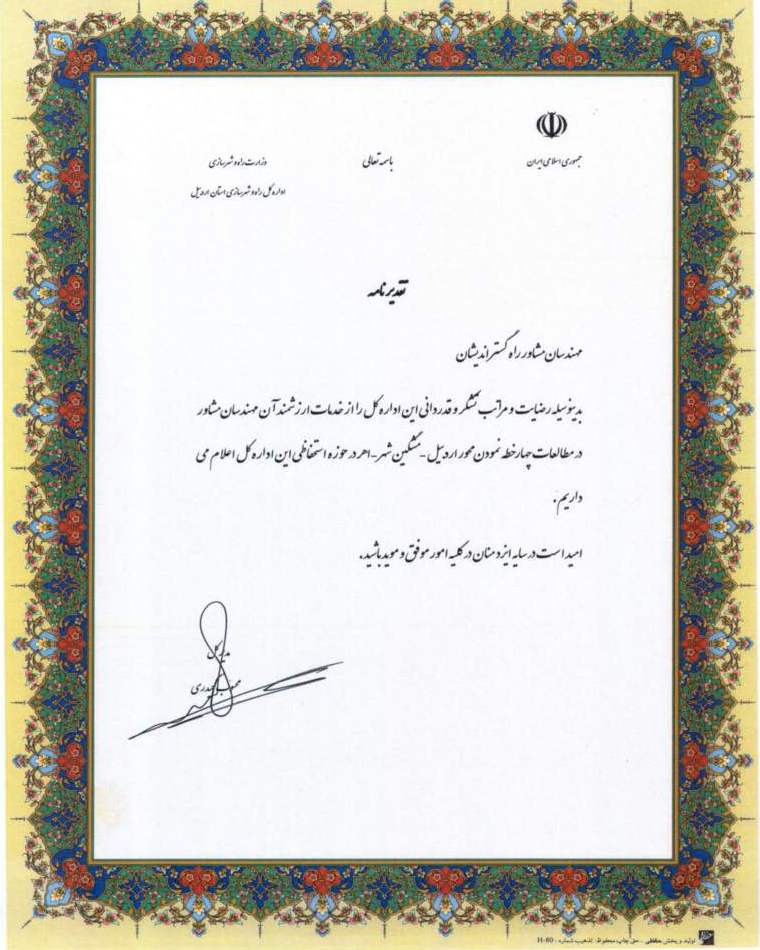 جمهوری اسلامی ایران
باسمه تعالی
وزارت راه و شهرسازی
اداره کل راه و شهرسازی استان اردبیل
تقدیرنامه
مهندسان مشاور راه گستر اندیشان
بدینوسیله رضایت و مراتب تشکر و قدردانی این اداره کل را از خدمات ارزشمند آن مهندسان مشاور
در مطالعات چهارخطه نمودن محور اردبیل - مشگین شهر - اهر در حوزه استحفاظی این اداره کل اعلام می
داریم.
امید است در سایه ایزد منان در کلیه امور موفق و موید باشید.
مدیرکل
حیدری
تولید و پخش حافظی - حق چاپ محفوظ. تذهیب شماره: H-80